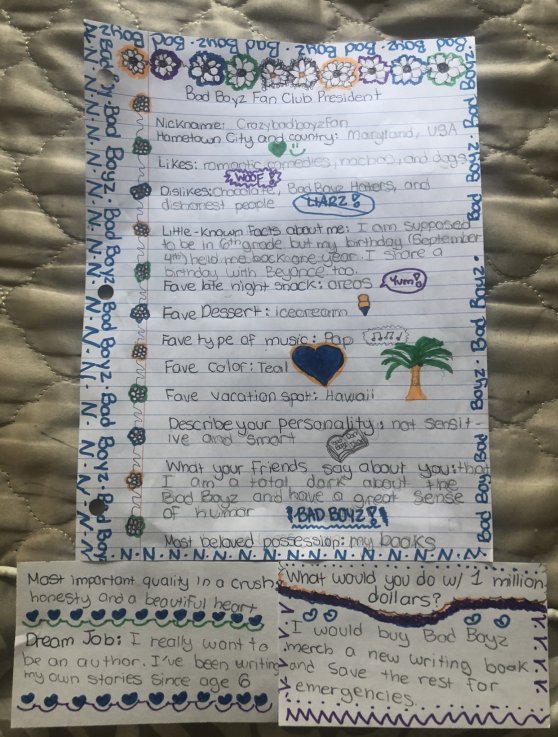 Bad Boyz · Bad Boyz · Bad Boyz · Bad Boyz · Bad Boyz
Bad Boyz Fan Club President
Nickname: Crazybadboyzfan
Hometown City and country: Maryland, USA
Likes: romantic comedies, nachos, and dogs
WOOF!
Dislikes: chocolate, Bad Boyz Haters, and
dishonest people
LIARZ!
Little-Known Facts about me: I am supposed
to be in 6th grade but my birthday (September
4th) held me back one year. I share a
birthday with Beyónce too.
Fave late night snack: oreos
Yum!
Fave Dessert: icecream
Fave type of music: Pop
Fave color: Teal
Fave vacation spot: Hawaii
Describe your personality: not sensit-
ive and smart
What your friends say about you: that
I am a total dork about the
Bad Boyz and have a great sense
of humor
!BAD BOYZ!
Most beloved possession: my books
N · N · N · N · N · N · N · N · N · N · N · N
Bad Boyz · Bad Boyz · Bad Boyz · Bad Boyz · Bad Boyz
Bad Boyz · Bad Boyz · Bad Boyz · Bad Boyz
Most important quality in a crush:
honesty and a beautiful heart
Dream Job: I really want to
be an author. I've been writing
my own stories since age 6
What would you do w/ 1 million
dollars?
I would buy Bad Boyz
merch a new writing book
and save the rest for
emergencies.